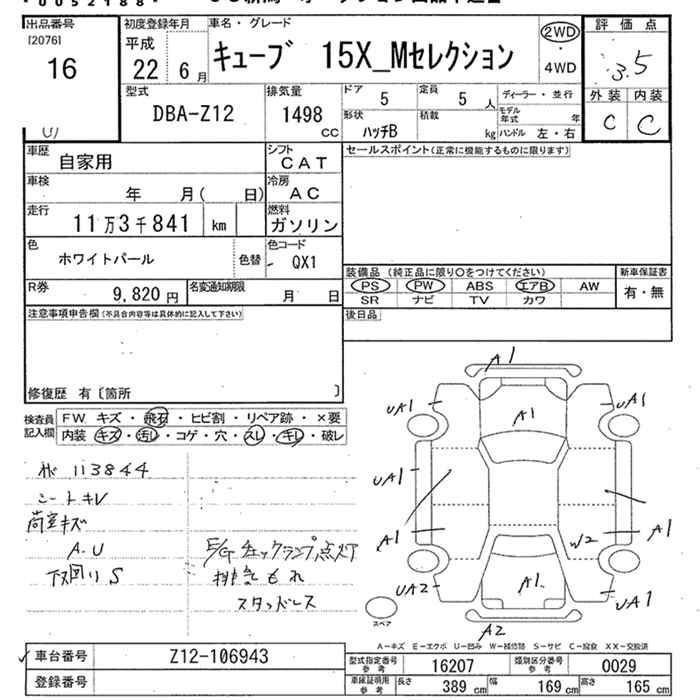 00521881
出品番号 初度登録年月 車名・グレード 評価点
[2076]
16
平成
22 6月
キューブ 15X_Mセレクション
2WD
・
4WD
3.5
型式 排気量 ドア 定員 ディーラー・並行 外装 内装
DBA-Z12 1498 cc 5 5 人
形状 積載 モデル年式 年
ハッチB kg ハンドル 左・右
C C
車歴 シフト セールスポイント(正常に機能するものに限ります)
自家用 CAT
車検 冷房
年 月( 日) AC
走行 燃料
11万3千841 km ガソリン
色 色コード
ホワイトパール 色替 QX1
装備品(純正品に限り○をつけてください) 新車保証書
PS PW ABS エアB AW 有・無
SR ナビ TV カワ
R券 名変通知期限
9,820円 月 日
注意事項申告欄(不具合内容等は具体的に記入して下さい) 後日品
修復歴 有〔箇所 〕
検査員記入欄
FW キズ・飛石・ヒビ割・リペア跡・×要
内装 キズ・汚レ・コゲ・穴・スレ・キレ・破レ
113844
シートキレ
荷室キズ
A.U
下回りS
E/Gチェックランプ点灯
排気もれ
スタッドレス
A1
UA1 A1 UA1
UA1
A1 W2 A1
UA2 A1 UA1
スペア
A2
A-キズ E-エクボ U-凹み W-補修跡 S-サビ C-腐食 XX-交換済
車台番号 Z12-106943
型式指定番号参考 16207 類別区分番号参考 0029
登録番号
車庫証明用参考 長さ 389cm 幅 169cm 高さ 165cm